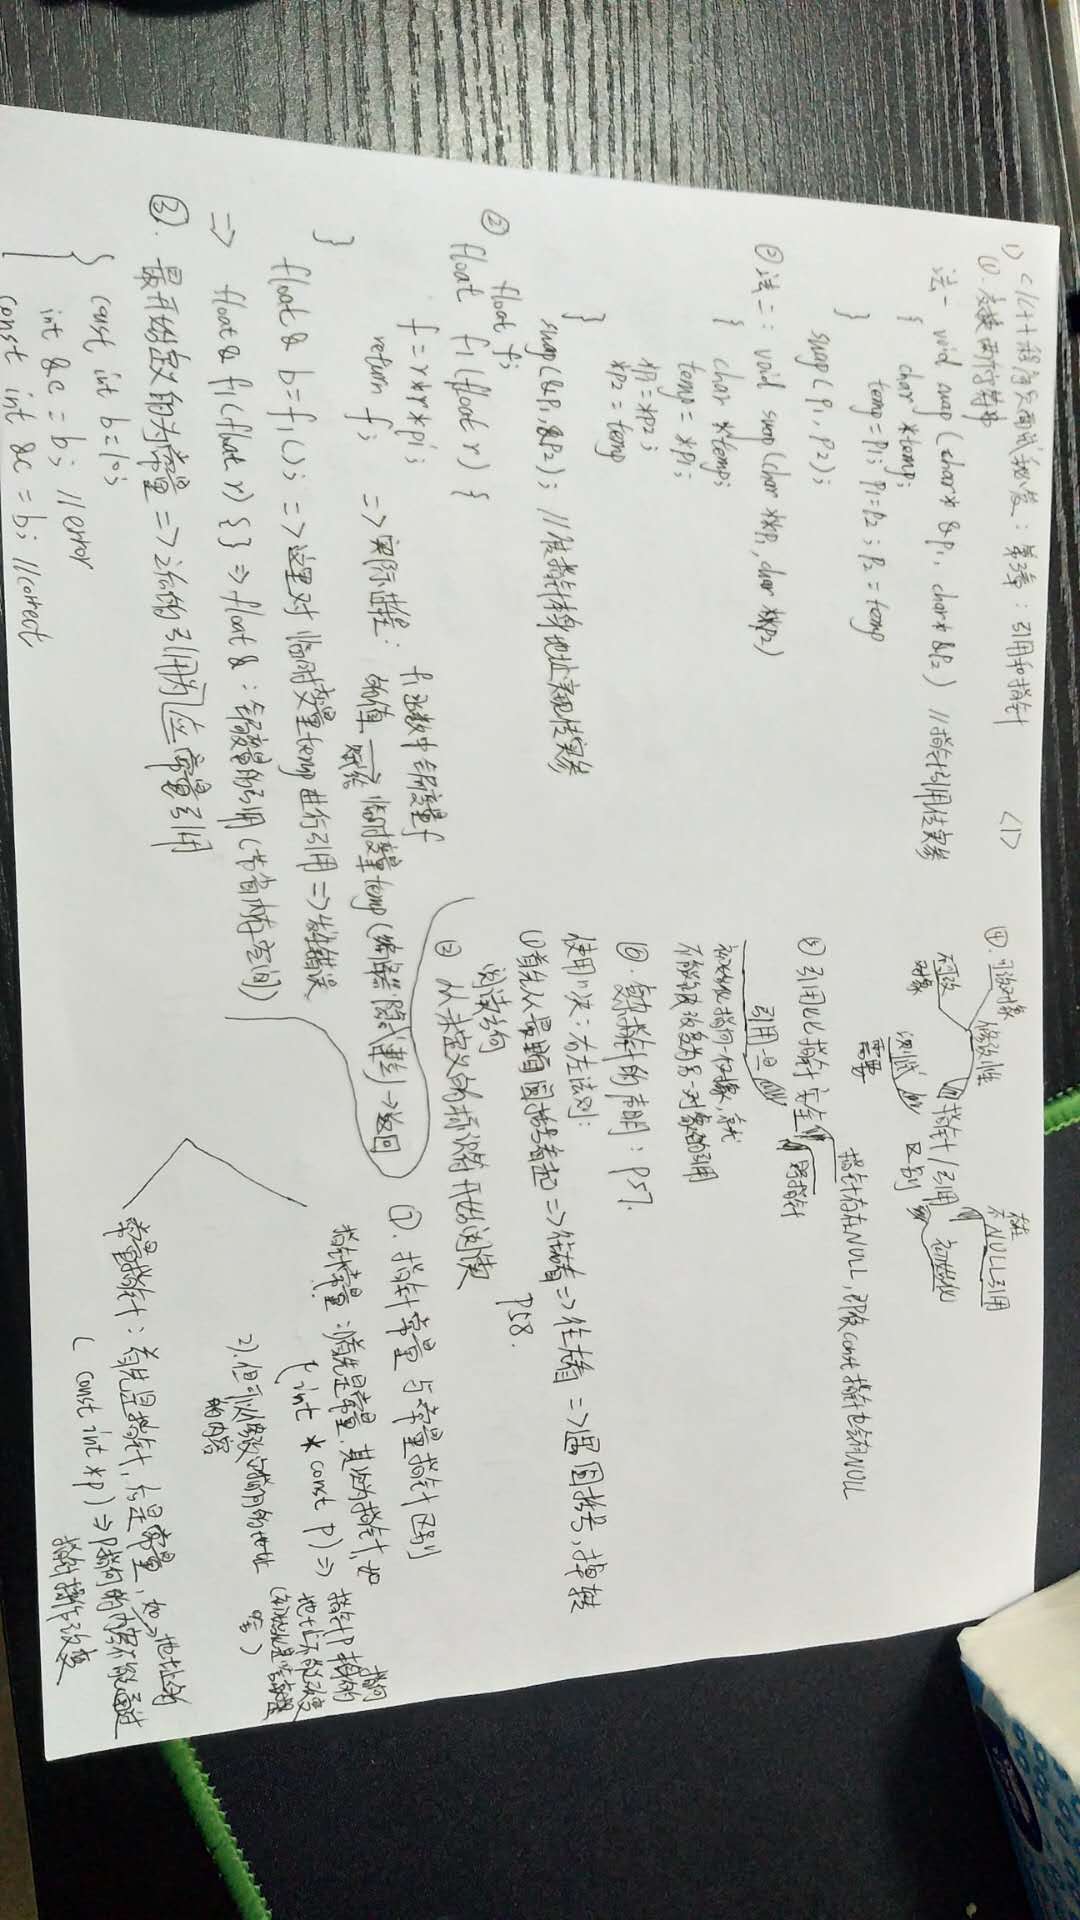 1) C/C++程序员面试秘笈：第3章：引用和指针 <1>
①. 交换两个字符串
法一 void swap (char* &p1, char* &p2) //指针引用传实参
{ char *temp;
temp=p1; p1=p2; p2=temp
}
swap(p1, p2);
②法二: void swap(char **p1, char **p2)
{ char *temp;
temp = *p1;
*p1=*p2;
*p2=temp
}
swap(&p1,&p2); //传指针本身地址实现传实参
② float f;
float f1(float r) {
f=r*r*pi;
return f; => 实际过程: f1函数中全局变量f
的值 赋给 → 临时变量temp(编译器隐式建立)→返回
}
float& b=f1(); =>这里对临时变量temp进行引用=>发生错误
=> float& f1(float r) { } => float& : 全局变量的引用(节省内存空间)
③. 最开始定义的为常量=>之后的引用为应常量引用
{ const int b=10;
int &c=b; //error
const int &c=b; //correct
④. 可改对象 修改性
不可改
对象
测试
需要
指针/引用
区别
存在
不NULL引用
初始化
⑤引用比指针安全
指针存在NULL,即使const指针也会有NULL
野指针
引用一旦
初始化指向一个对象,就
不能被改变为另一对象的引用
⑥. 复杂指针的声明: P57.
使用口决:右左法则:
①首先从最里面圆括号看起=>往右看=>往左看=>遇圆括号,掉转
阅读方向 P58.
② 从未定义的标识符开始阅读
⑦. 指针常量与常量指针区别
指针常量:1)首先是常量,其次为指针,如
(int * const p) => 指针P本身的 指向
地址不能改变
(初始化是啥就是
啥)
2).但可以修改它指向的地址
的内容
常量指针:首先是指针,后是常量,如 地址的
(const int *p) => P指向的内容不能通过
指针操作改变